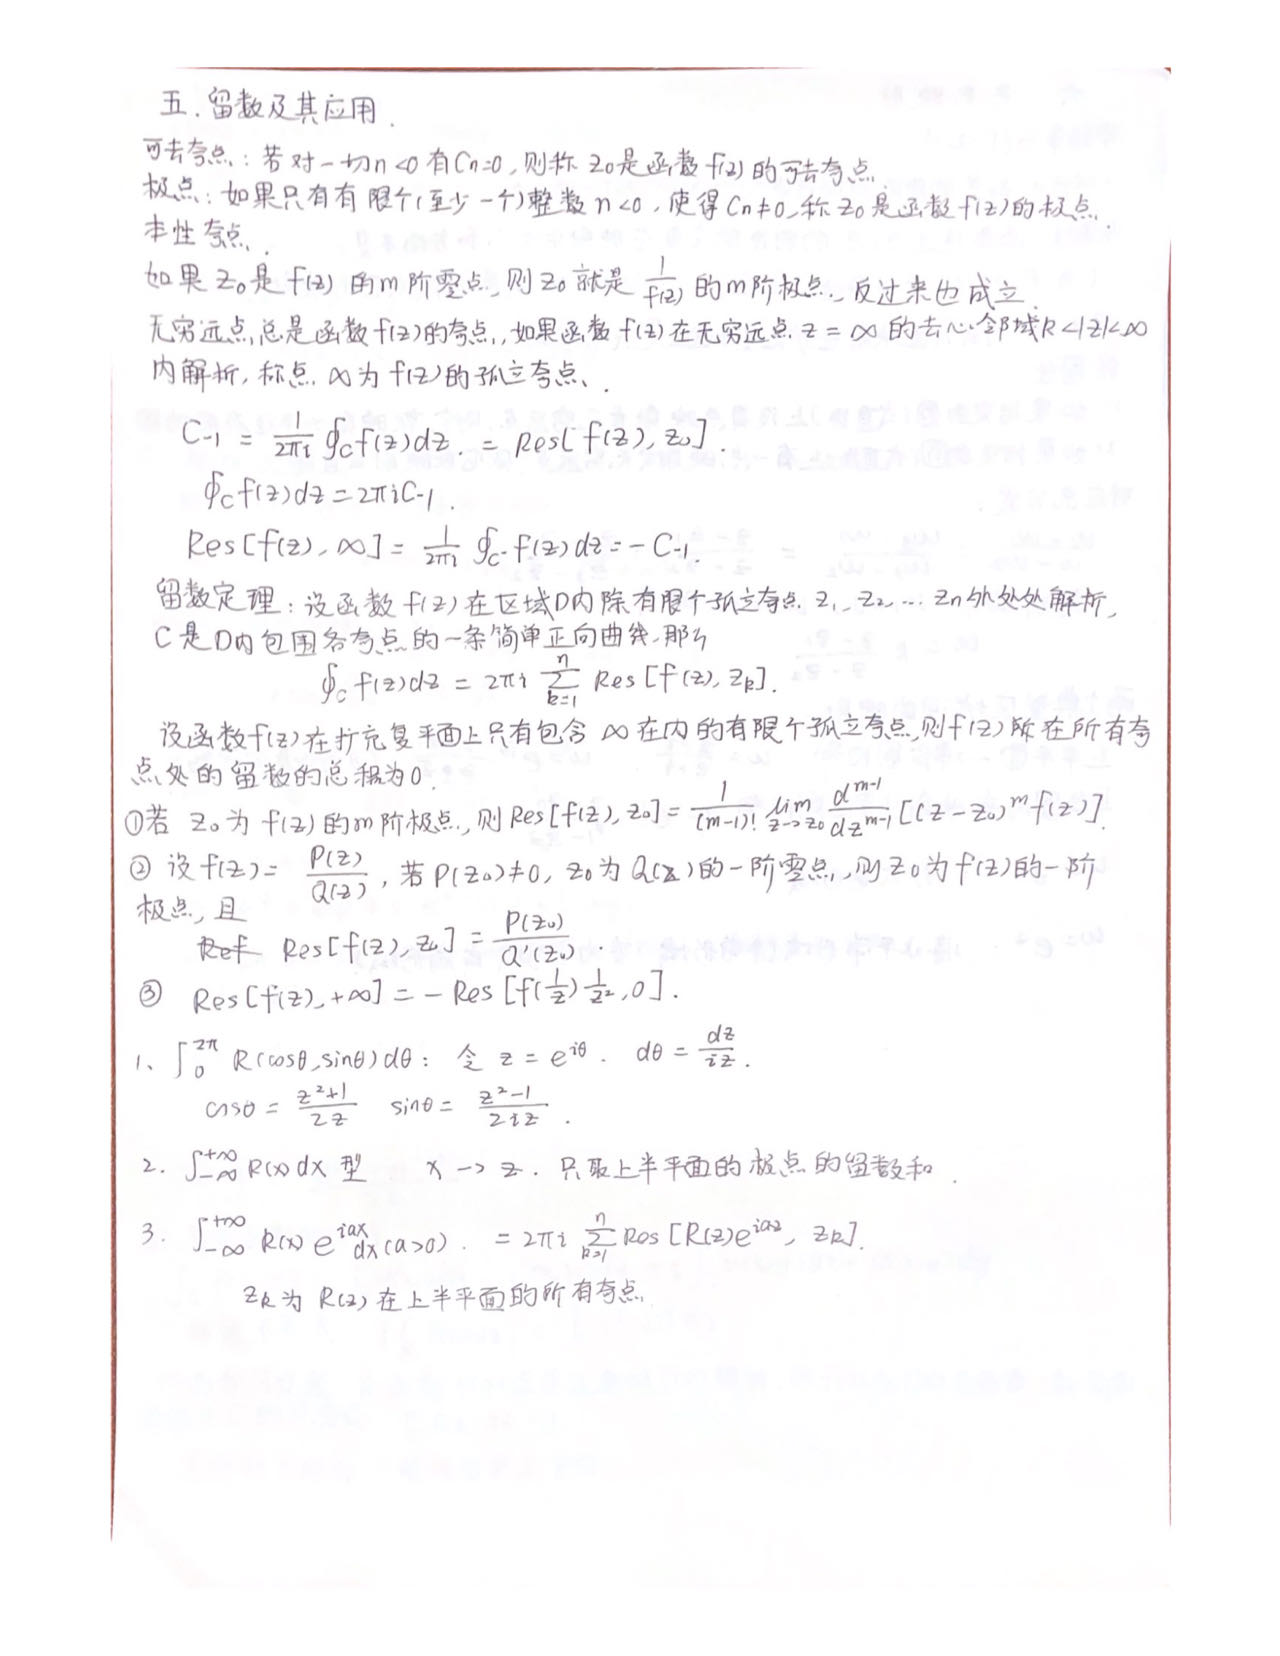 五.留数及其应用.
可去奇点:若对一切n<0有Cn=0,则称z₀是函数f(z)的可去奇点.
极点:如果只有有限个(至少一个)整数n<0,使得Cn≠0,称z₀是函数f(z)的极点.
本性奇点.
如果z₀是f(z)的m阶零点,则z₀就是1/f(z)的m阶极点,反过来也成立.
无穷远点总是函数f(z)的奇点,如果函数f(z)在无穷远点z=∞的去心邻域R<|z|<∞
内解析,称点∞为f(z)的孤立奇点.
C-1 = 1/2πi ∮c f(z)dz. = Res[f(z), z₀].
∮c f(z)dz = 2πi C-1.
Res[f(z), ∞] = 1/2πi ∮c⁻ f(z)dz = -C-1.
留数定理:设函数f(z)在区域D内除有限个孤立奇点z₁,z₂,…zn外处处解析,
C是D内包围各奇点的一条简单正向曲线,那么
∮c f(z)dz = 2πi ∑_{k=1}^{n} Res[f(z), zk].
设函数f(z)在扩充复平面上只有包含∞在内的有限个孤立奇点,则f(z)所在所有奇
点处的留数的总和为0.
①若z₀为f(z)的m阶极点,则Res[f(z), z₀] = 1/(m-1)! lim_{z→z₀} d^{m-1}/dz^{m-1} [(z-z₀)^m f(z)].
②设f(z) = P(z)/Q(z),若P(z₀)≠0, z₀为Q(z)的一阶零点,则z₀为f(z)的一阶
极点,且
Ref Res[f(z), z₀] = P(z₀)/Q'(z₀).
③ Res[f(z), +∞] = -Res[f(1/z) 1/z², 0].
1、∫₀^{2π} R(cosθ, sinθ)dθ: 令 z = e^{iθ}. dθ = dz/iz.
cosθ = z²+1/2z sinθ = z²-1/2iz.
2. ∫_{-∞}^{+∞} R(x)dx型 x→z. 只取上半平面的极点的留数和.
3. ∫_{-∞}^{+∞} R(x)e^{iax}dx(a>0). = 2πi ∑_{k=1}^{n} Res[R(z)e^{iaz}, zk].
zk为R(z)在上半平面的所有奇点.